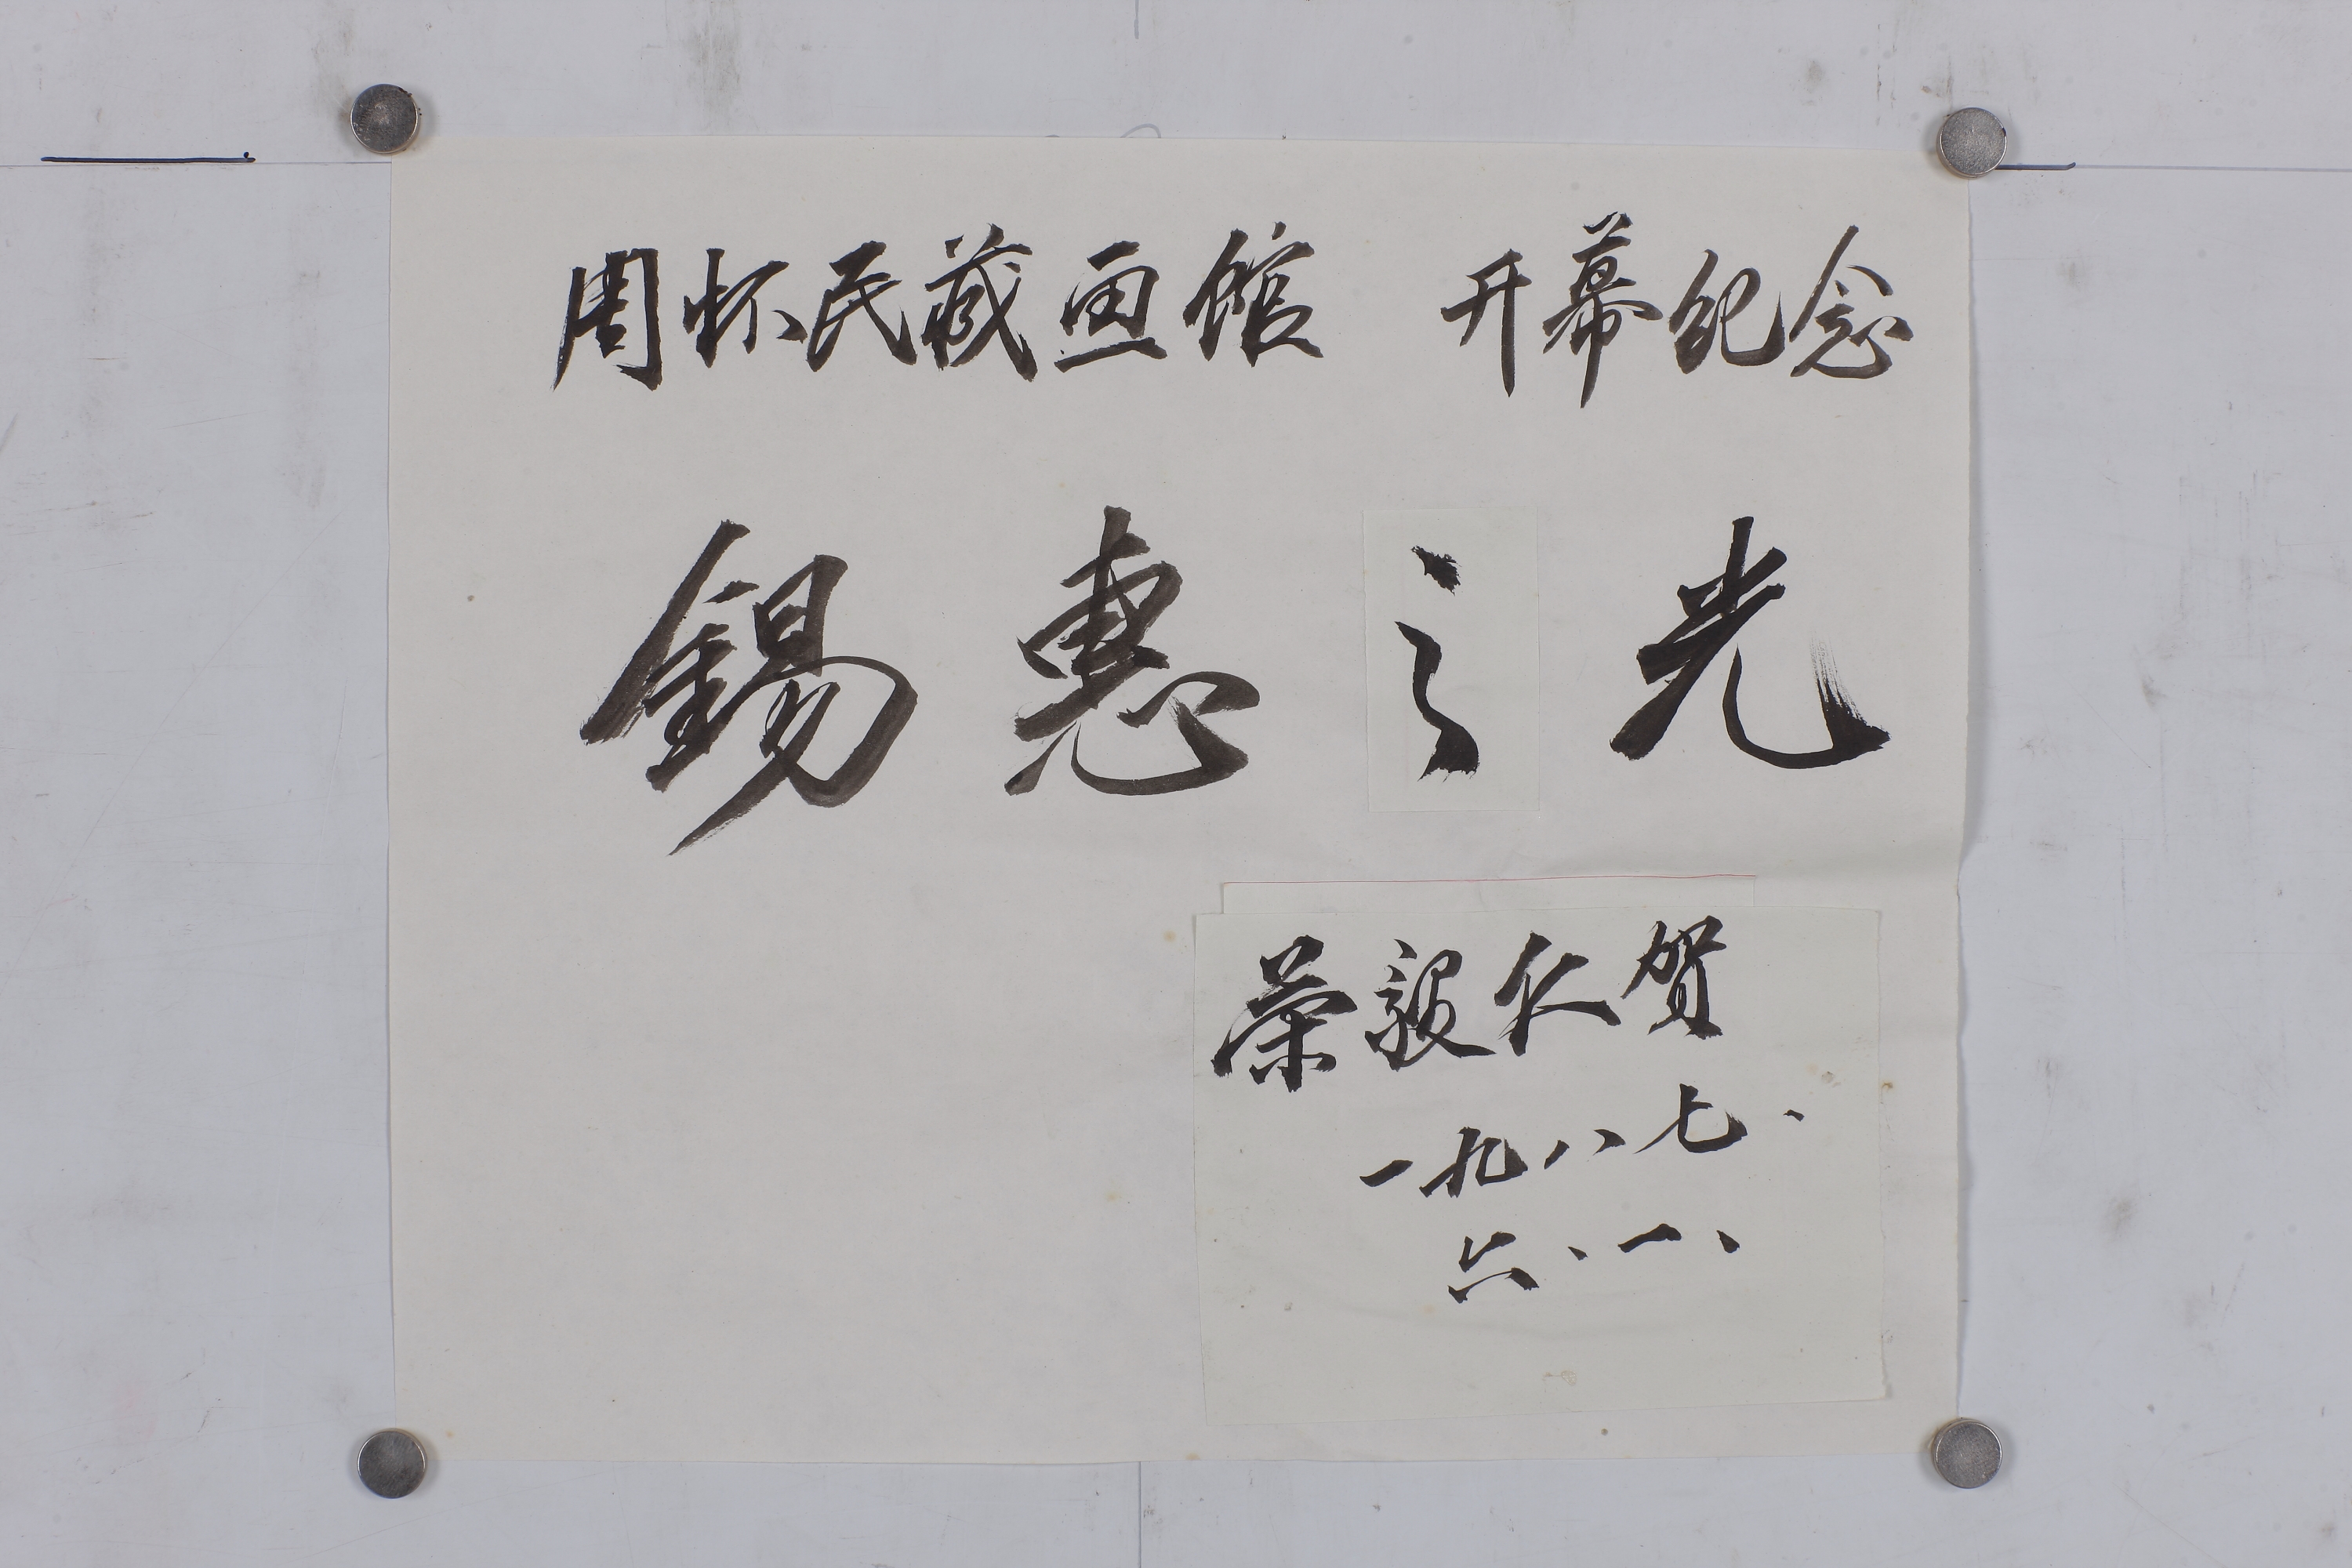 周怀民藏画馆 开幕纪念
錫惠之光
荣毅仁贺
一九八七、
六、一、